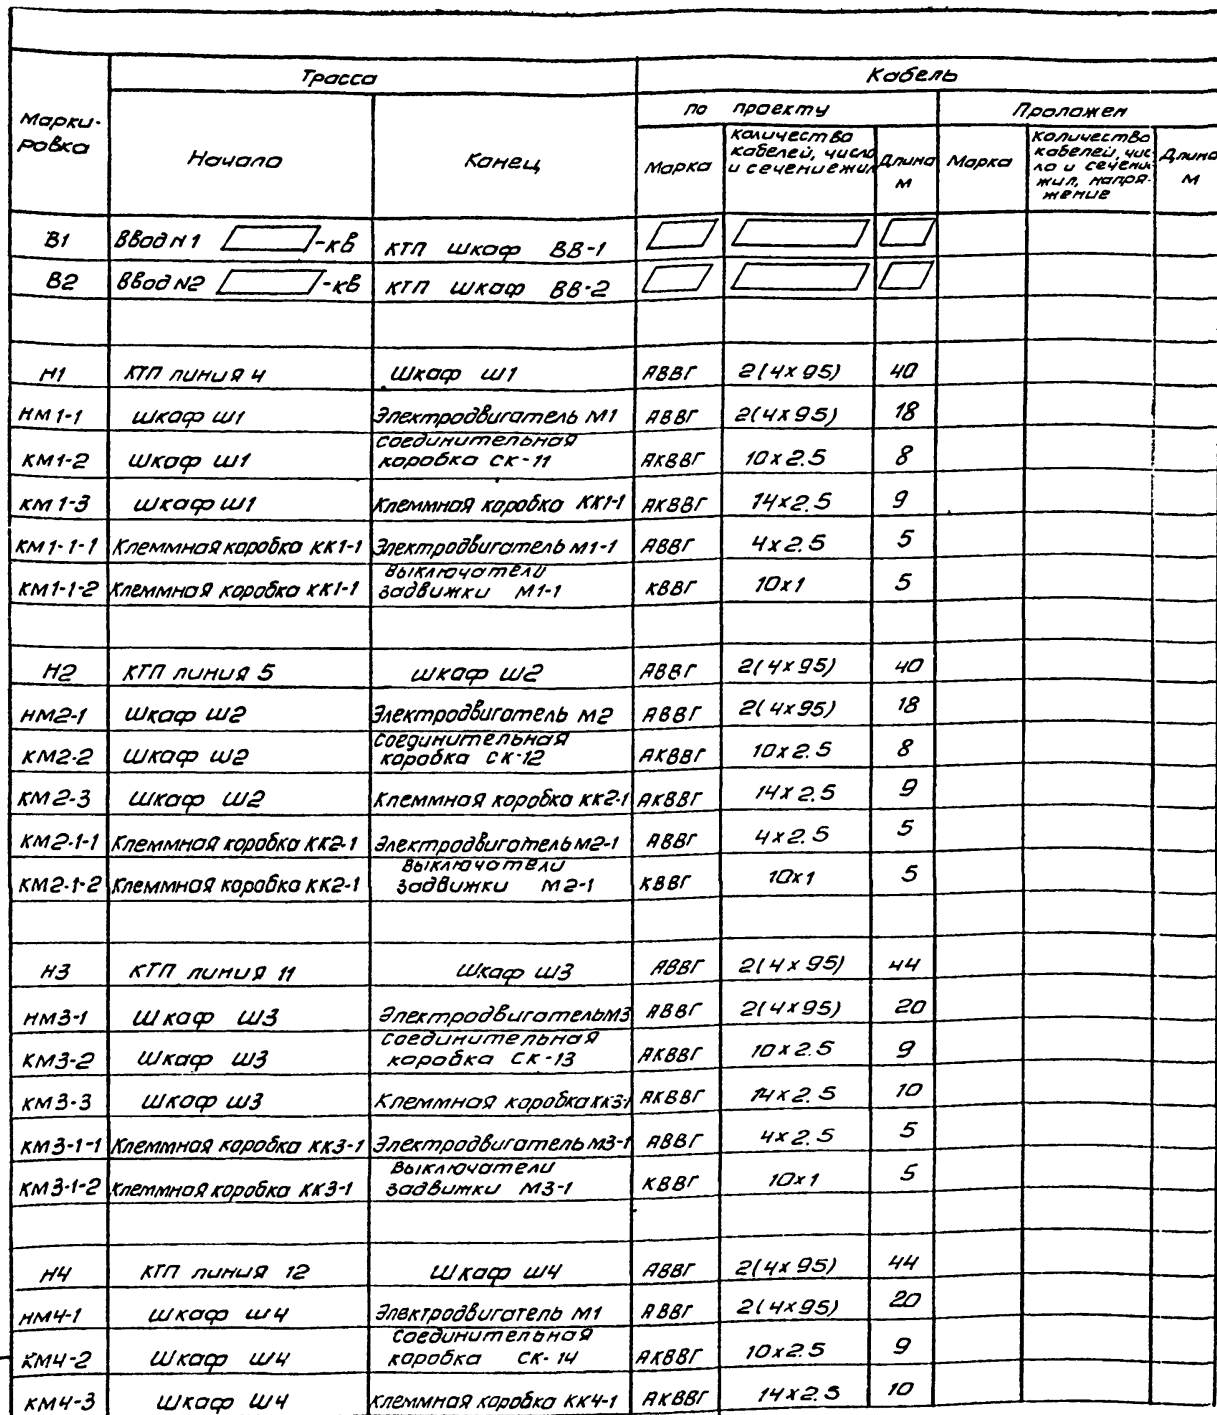 Трасса Кабель
по проекту Проложен
Марки-
ровка
Начало Конец Марка
количество
кабелей, число
и сечение жил
Длина
м
Марка
Количество
кабелей, чис-
ло и сечени
жил, напря-
жение
Длина
м
В1 Ввод N1 -кВ КТП шкаф ВВ-1
В2 Ввод N2 -кВ КТП шкаф ВВ-2
Н1 КТП линия 4 Шкаф Ш1 АВВГ 2(4х95) 40
НМ1-1 Шкаф Ш1 Электродвигатель М1 АВВГ 2(4х95) 18
КМ1-2 Шкаф Ш1 Соединительная
коробка СК-11 АКВВГ 10х2.5 8
КМ1-3 Шкаф Ш1 Клеммная коробка КК1-1 АКВВГ 14х2.5 9
КМ1-1-1 Клеммная коробка КК1-1 Электродвигатель М1-1 АВВГ 4х2.5 5
КМ1-1-2 Клеммная коробка КК1-1 Выключатели
задвижки М1-1 КВВГ 10х1 5
Н2 КТП линия 5 Шкаф Ш2 АВВГ 2(4х95) 40
НМ2-1 Шкаф Ш2 Электродвигатель М2 АВВГ 2(4х95) 18
КМ2-2 Шкаф Ш2 Соединительная
коробка СК-12 АКВВГ 10х2.5 8
КМ2-3 Шкаф Ш2 Клеммная коробка КК2-1 АКВВГ 14х2.5 9
КМ2-1-1 Клеммная коробка КК2-1 Электродвигатель М2-1 АВВГ 4х2.5 5
КМ2-1-2 Клеммная коробка КК2-1 Выключатели
задвижки М2-1 КВВГ 10х1 5
Н3 КТП линия 11 Шкаф Ш3 АВВГ 2(4х95) 44
НМ3-1 Шкаф Ш3 Электродвигатель М3 АВВГ 2(4х95) 20
КМ3-2 Шкаф Ш3 Соединительная
коробка СК-13 АКВВГ 10х2.5 9
КМ3-3 Шкаф Ш3 Клеммная коробка КК3-1 АКВВГ 14х2.5 10
КМ3-1-1 Клеммная коробка КК3-1 Электродвигатель М3-1 АВВГ 4х2.5 5
КМ3-1-2 Клеммная коробка КК3-1 Выключатели
задвижки М3-1 КВВГ 10х1 5
Н4 КТП линия 12 Шкаф Ш4 АВВГ 2(4х95) 44
НМ4-1 Шкаф Ш4 Электродвигатель М1 АВВГ 2(4х95) 20
КМ4-2 Шкаф Ш4 Соединительная
коробка СК-14 АКВВГ 10х2.5 9
КМ4-3 Шкаф Ш4 Клеммная коробка КК4-1 АКВВГ 14х2.5 10